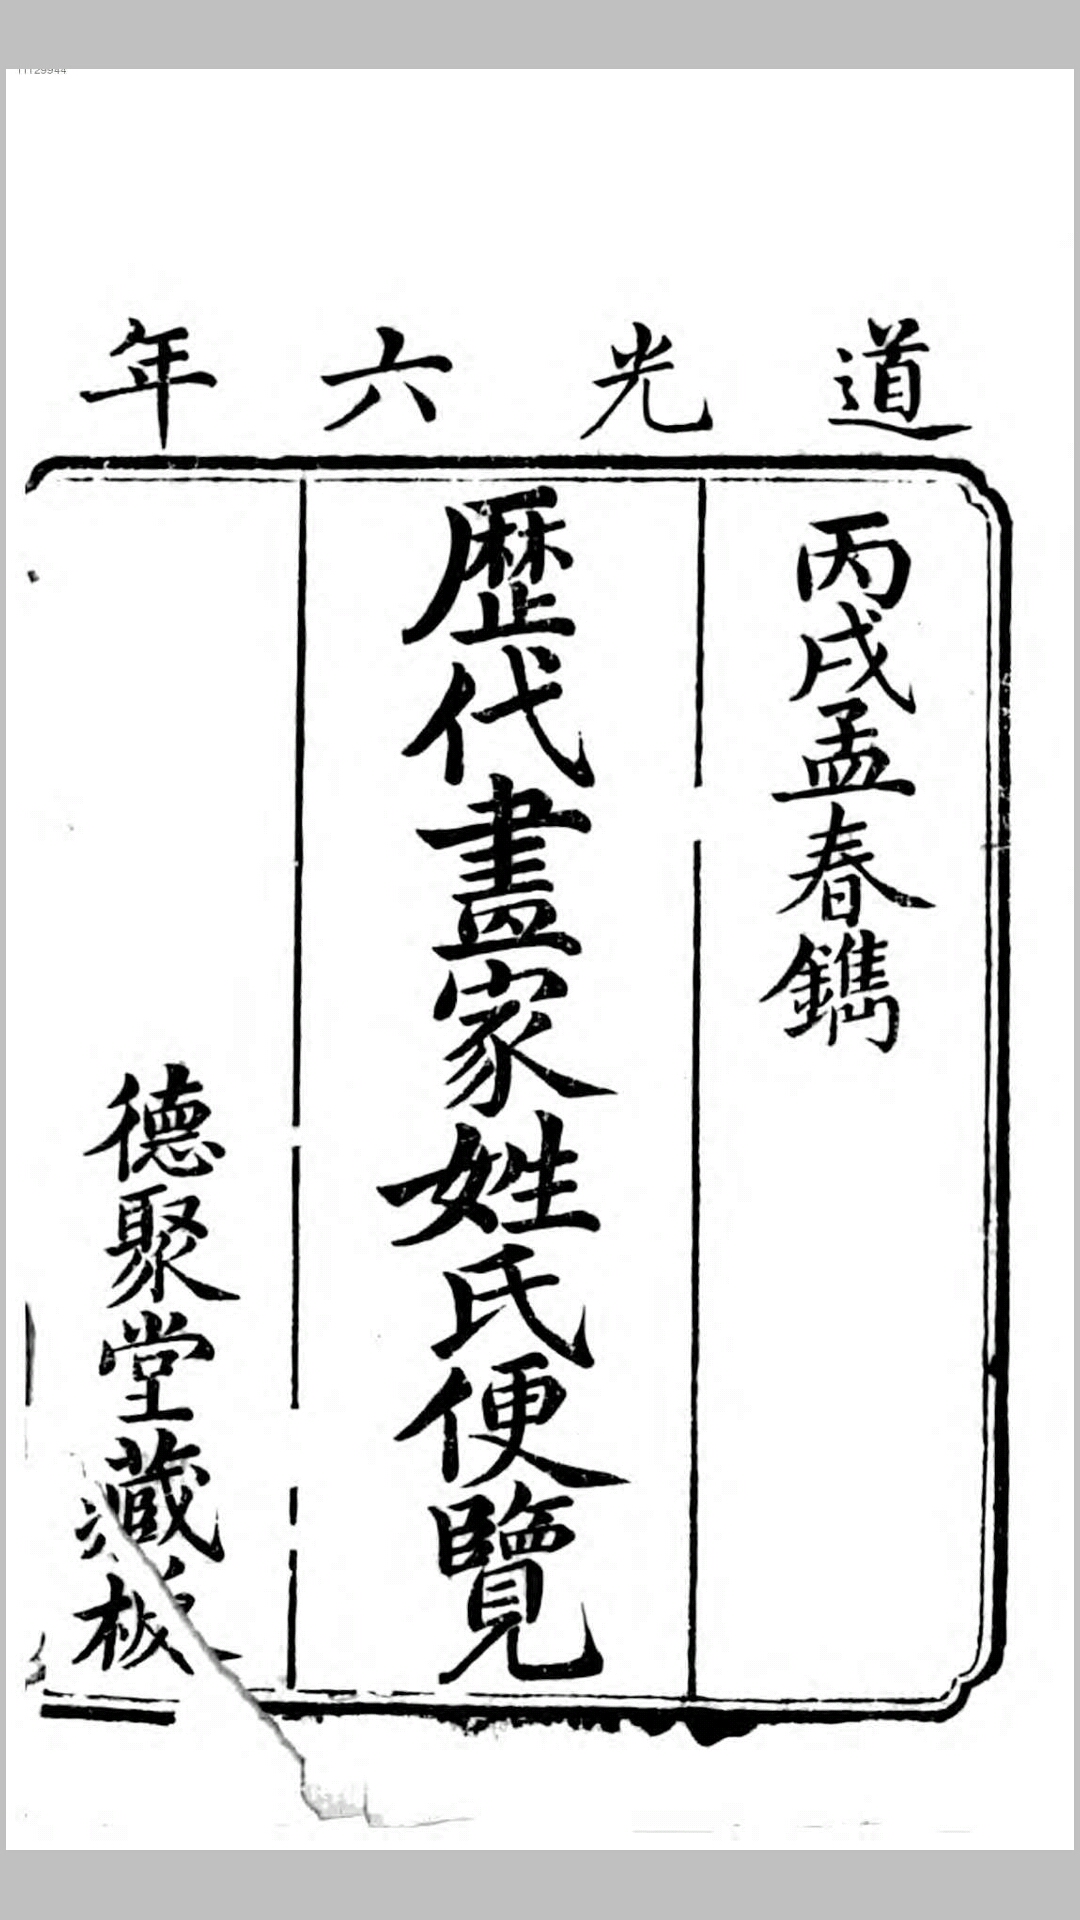 11129944
道光六年
丙戌孟春鐫
歷代畫家姓氏便覽
德聚堂藏板